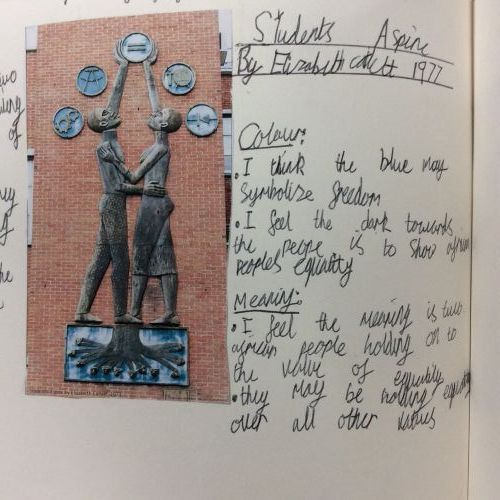 Students Aspire
By Elizabeth catlett 1977
two
of
they
of
the
Colour:
• I think the blue may
symbolize freedom
• I feel the dark towards
the people is to show african
peoples equality
Meaning:
• I feel the meaning is two
african people holding on to
the value of equality
• they may be holding equality
over all other values